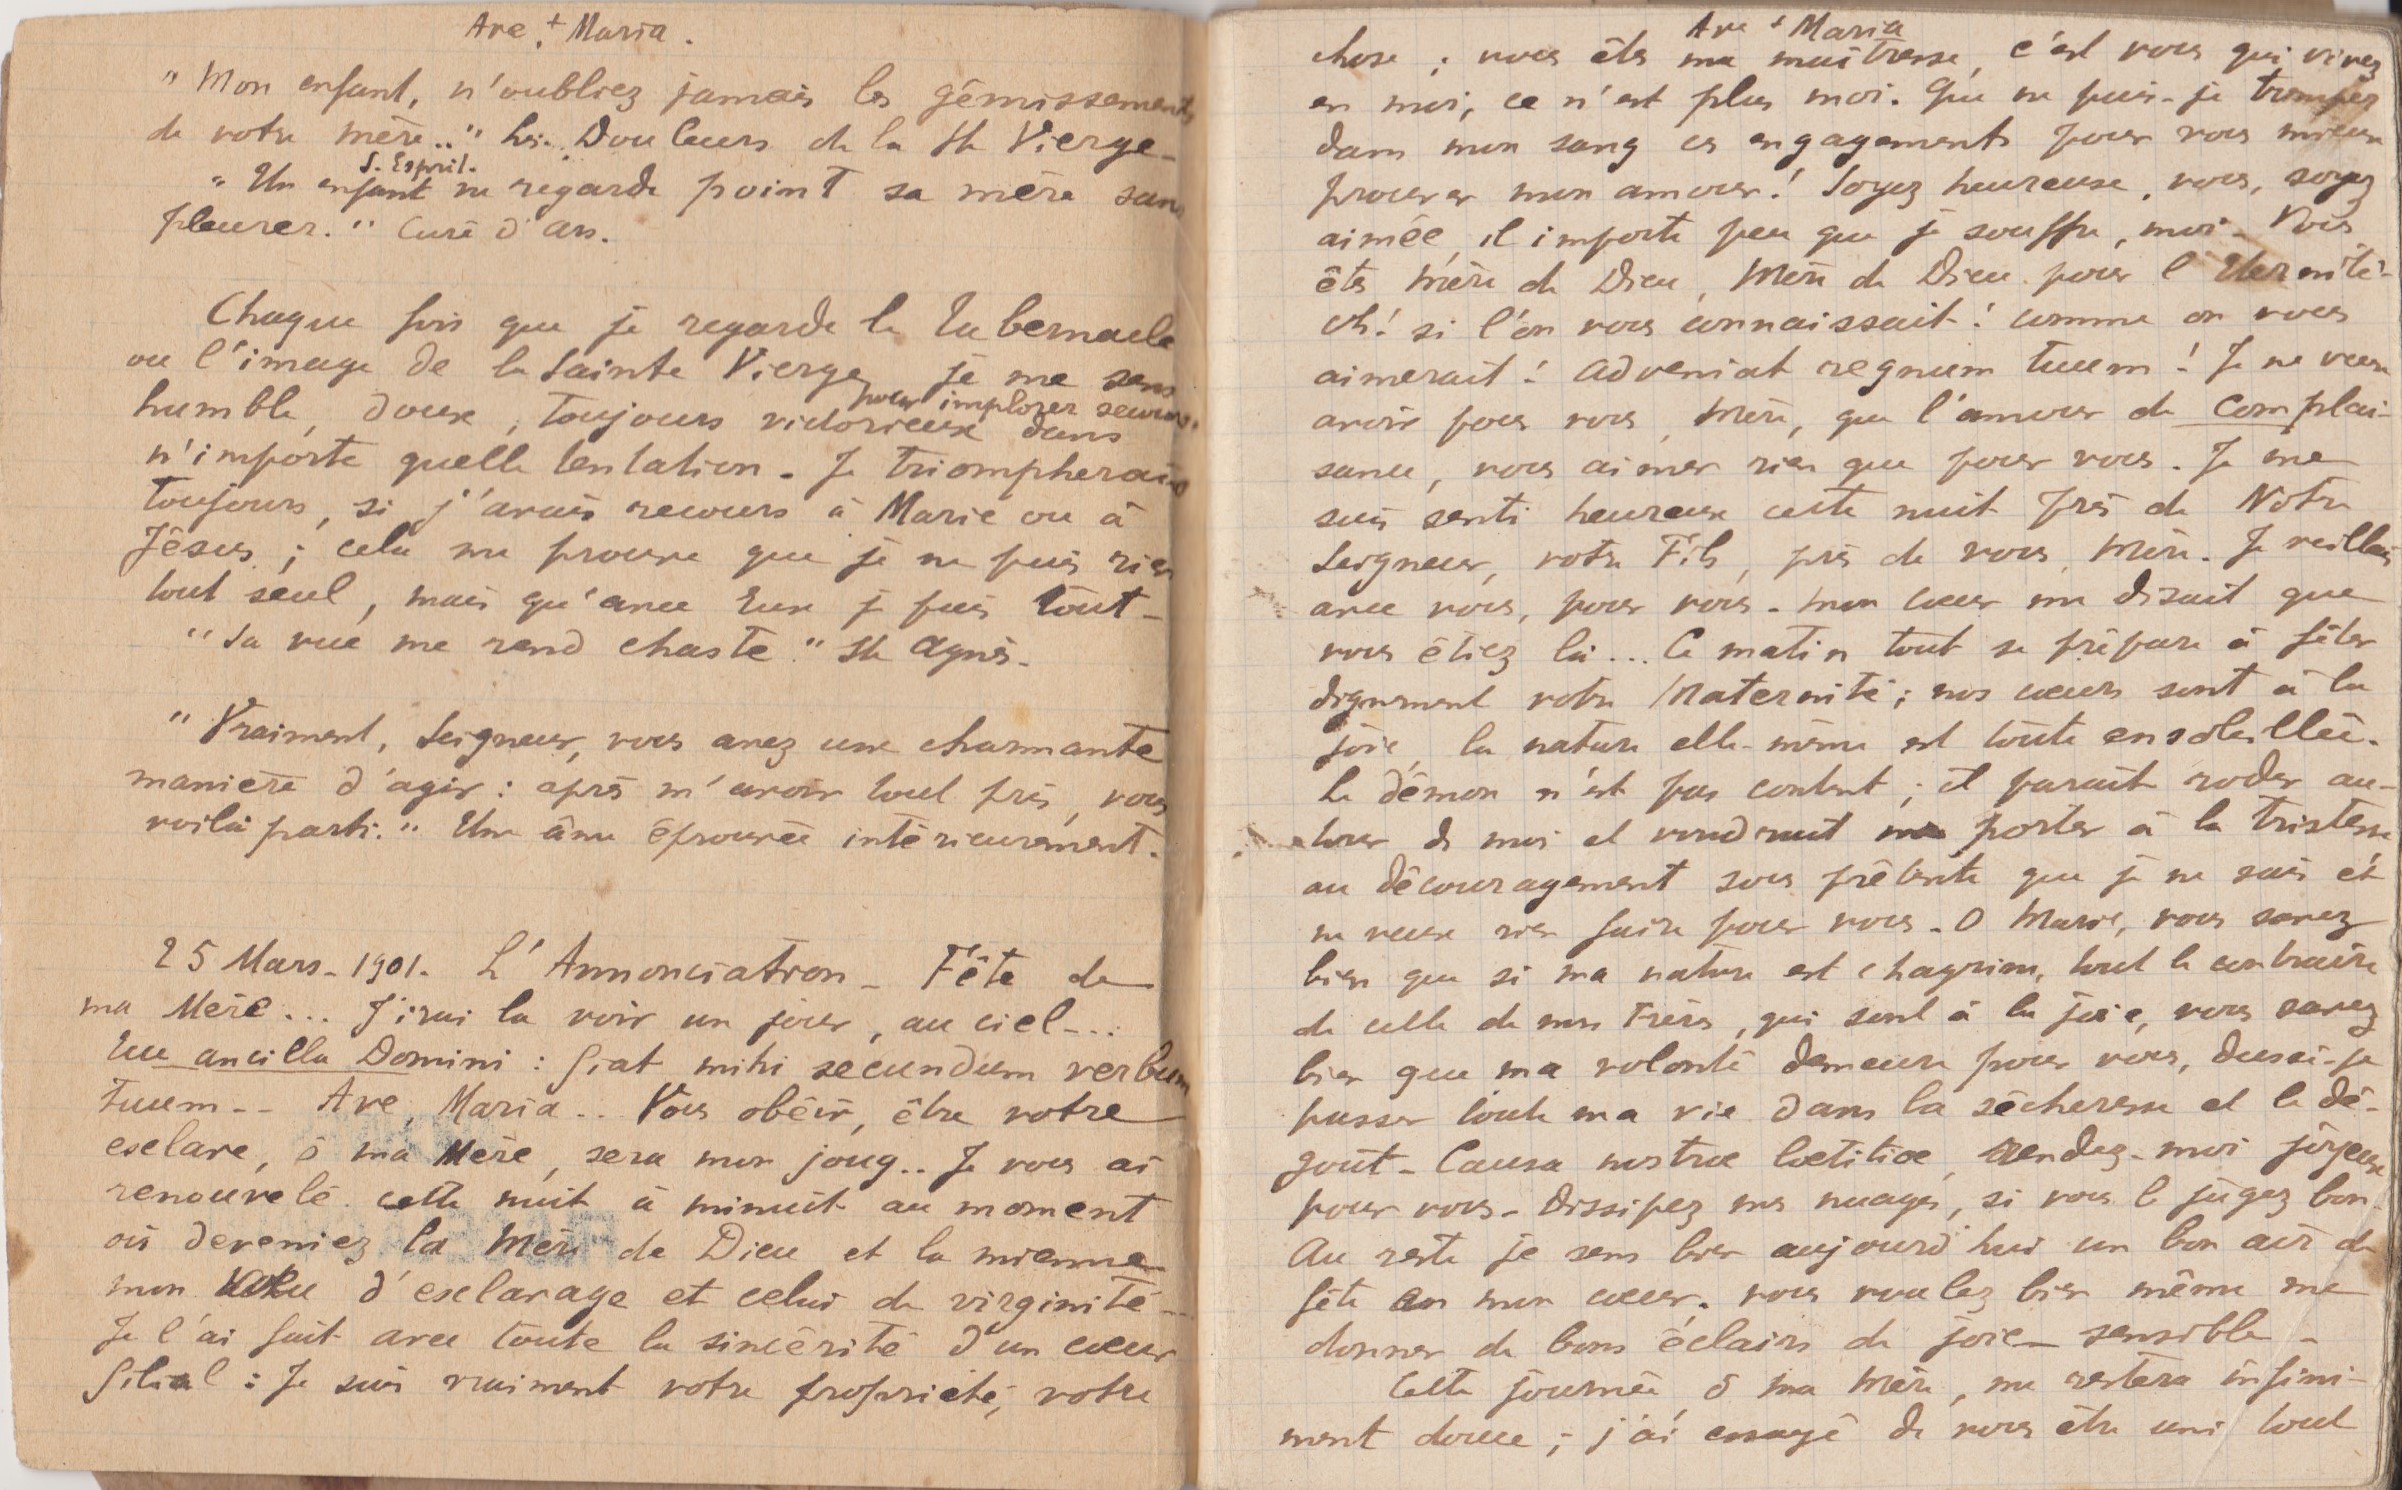 Ave + Maria.
"Mon enfant, n'oubliez jamais les gémissements
de votre mère.." Les Douleurs de la Ste Vierge -
S. Esprit.
"Un enfant ne regarde point sa mère sans
pleurer." Curé d'Ars.
Chaque fois que je regarde le Tabernacle
ou l'image de la Sainte Vierge, je me sens
pour implorer secours,
humble, doux, toujours victorieux dans
n'importe quelle tentation. Je triompherais
toujours, si j'avais recours à Marie ou à
Jésus ; cela me prouve que je ne puis rien
tout seul, mais qu'avec Eux je puis tout -
"Sa vue me rend chaste." Ste Agnès.
"Vraiment, Seigneur, vous avez une charmante
manière d'agir : après m'avoir tout pris, vous
voilà parti." Une âme éprouvée intérieurement.
25 Mars - 1901. L'Annonciation - Fête de
ma Mère... J'irai la voir un jour, au ciel...
Ecce ancilla Domini : fiat mihi secundum verbum
tuum -- Ave, Maria.. Vous obéir, être votre
esclave, ô ma Mère, sera mon joug.. Je vous ai
renouvelé cette nuit à minuit au moment
où deveniez la Mère de Dieu et la mienne
mon voeu d'esclavage et celui de virginité --
Je l'ai fait avec toute la sincérité d'un coeur
filial : Je suis vraiment votre propriété, votre
Ave + Maria
chose ; vous êtes ma maîtresse, c'est vous qui vivez
en moi, ce n'est plus moi. Que ne puis-je tremper
dans mon sang ces engagements pour vous mieux
prouver mon amour ! Soyez heureuse, vous, soyez
aimée, il importe peu que je souffre, moi - Vous
êtes Mère de Dieu, Mère de Dieu pour l'Eternité -
oh ! si l'on vous connaissait ! comme on vous
aimerait ! Adveniat regnum tuum ! Je ne veux
avoir pour vous, Mère, que l'amour de complai-
sance, vous aimer rien que pour vous. Je me
suis senti heureux cette nuit près de Notre
Seigneur, votre Fils, près de vous, Mère. Je veillais
avec vous, pour vous - mon coeur me disait que
vous étiez là... Ce matin tout se prépare à fêter
dignement votre Maternité ; nos coeurs sont à la
joie, la nature elle-même est toute ensoleillée.
Le démon n'est pas content ; il parait roder au-
tour de moi et voudrait me porter à la tristesse
au découragement sous prétexte que je ne sais et
ne veux rien faire pour vous - O Marie, vous savez
bien que si ma nature est chagrine, tout le contraire
de celle de mes Frères, qui sont à la joie, vous savez
bien que ma volonté demeure pour vous, dussé-je
passer toute ma vie dans la sécheresse et le dé-
goût - Causa nostrae laetitiae, rendez-moi joyeux
pour vous - Dissipez mes nuages, si vous le jugez bon
Au reste je sens bien aujourd'hui un bon air de
fête en mon coeur. vous voulez bien même me
donner de bons éclairs de joie sensible -
Cette journée, ô ma Mère, me restera infini-
ment douce ; j'ai essayé de vous être uni tout